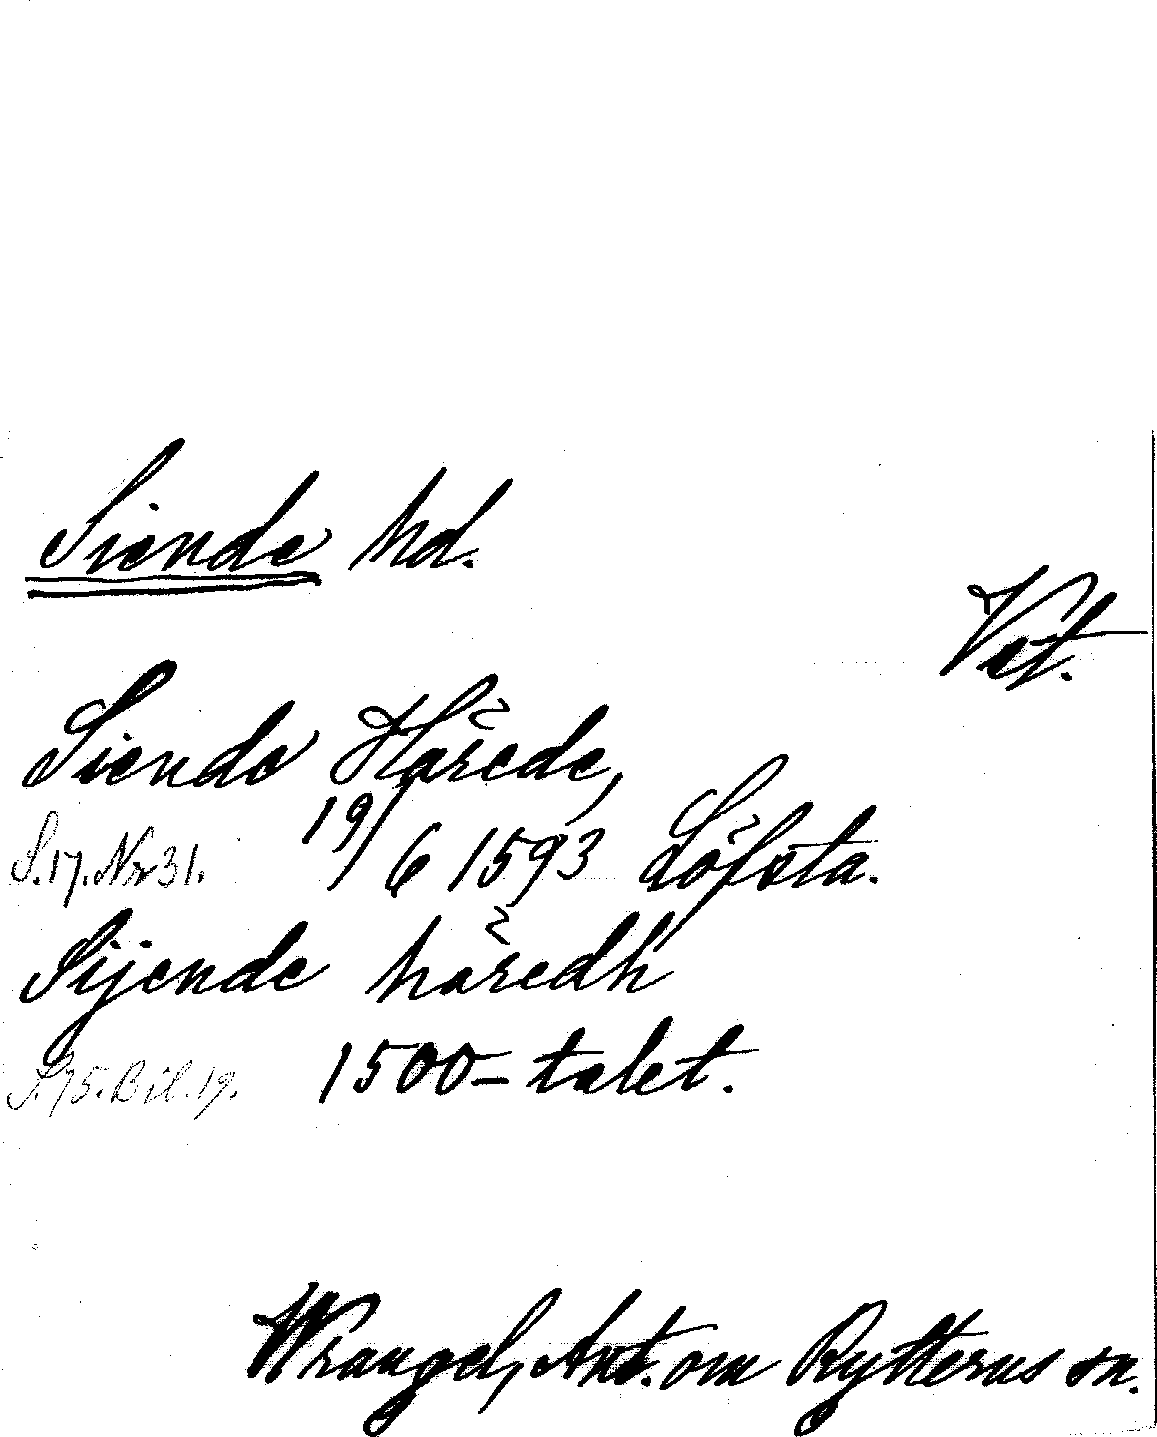 Siende hd.
Vst.
Siende Härede,
S.17.Nr31. 19/6 1593 Löfsta.
Sijende häredh
S.75.Bil.19. 1500-talet.
Wrangel, Ant. om Rytterns sn.